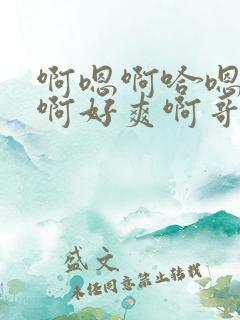 啊嗯啊哈嗯
啊好爽啊哥
盛文
未经同意禁止转载